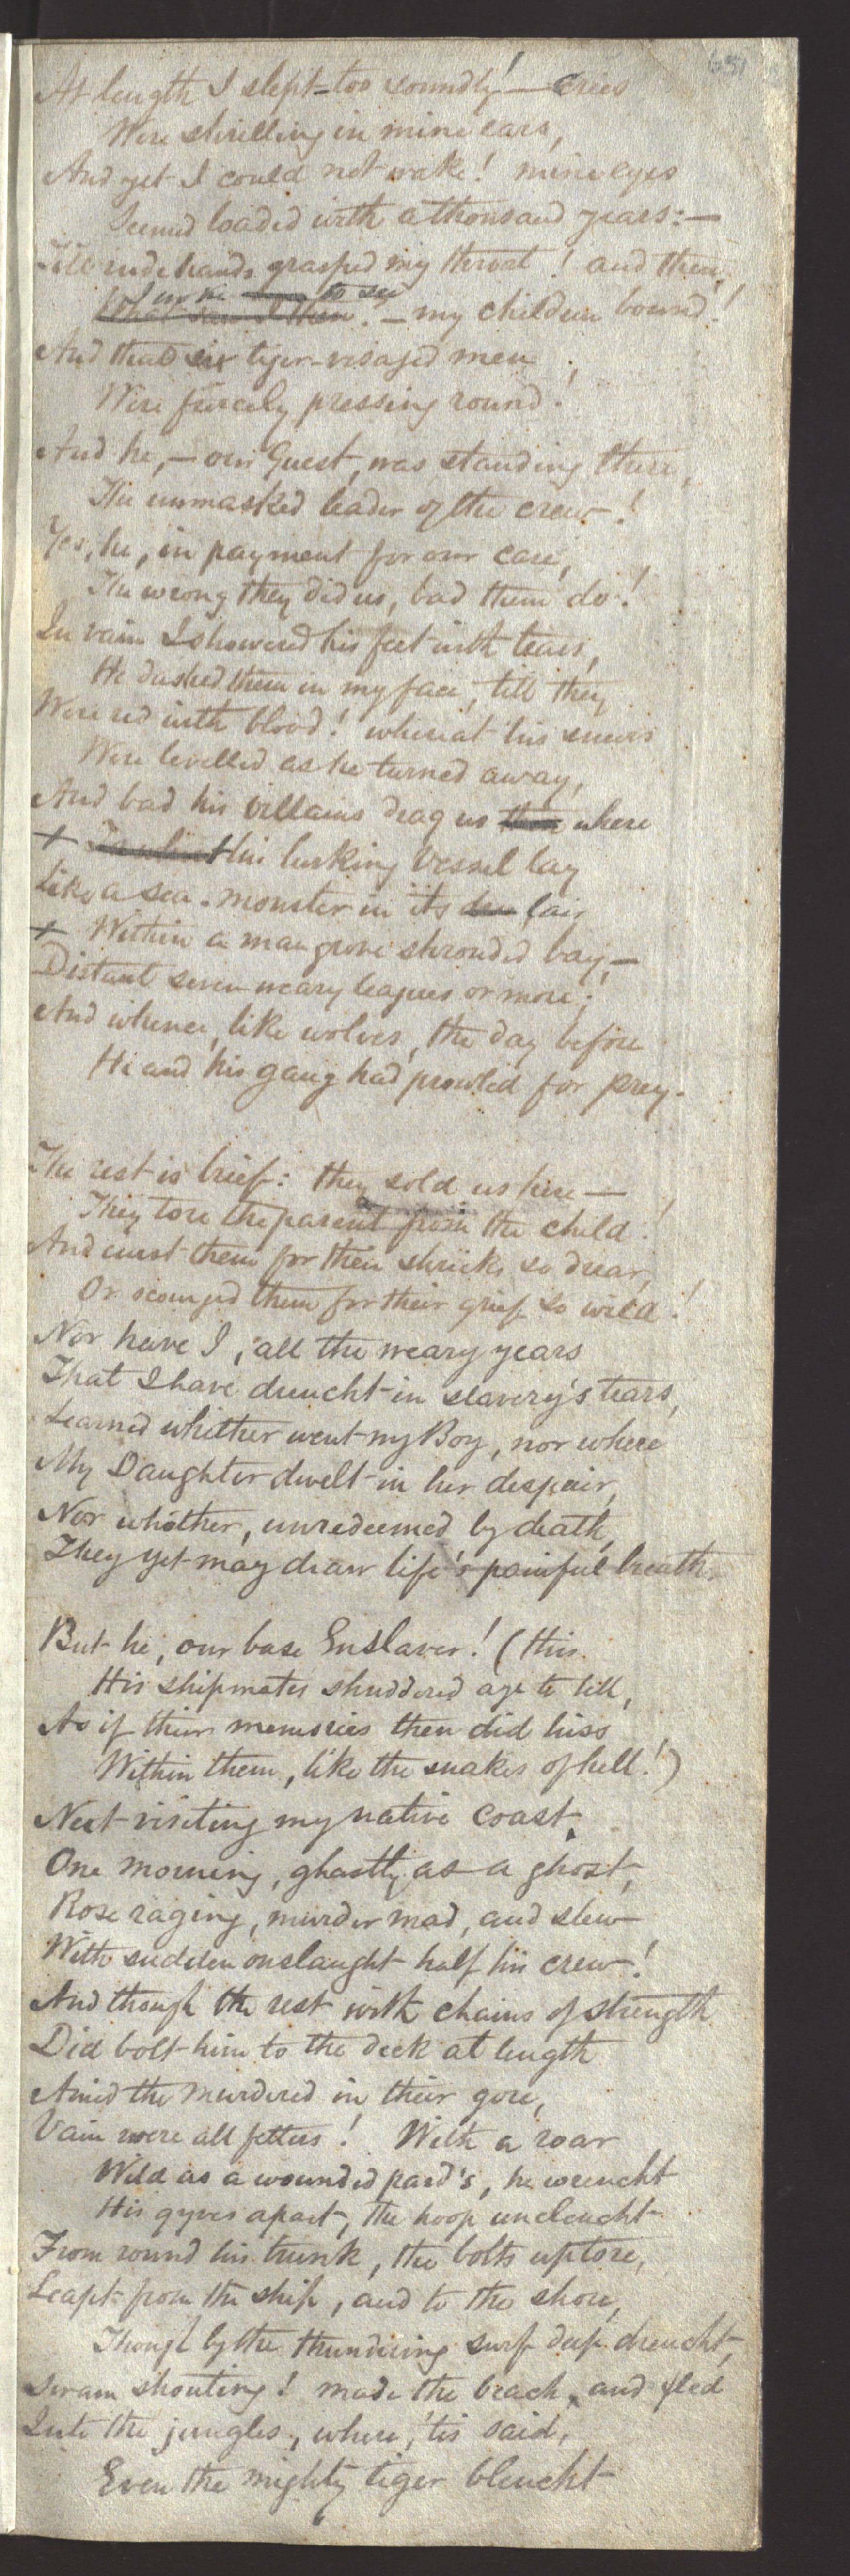 651
At length I slept—too soundly!—cries
Were shrilling in mine ears,
And yet I could not wake! mine eyes
Seemed loaded with a thousand years:—
Till rude hands grasped my throat! and then
I woke to see
What saw I then?—my children bound!
And that six tiger-visaged men
Were fiercely pressing round!
And he,—our Guest, was standing there,
The unmasked leader of the crew!
Yes, he, in payment for our care,
The wrong they did us, bad them do!
In vain I showered his feet with tears,
He dashed them in my face, till they
Were red with blood! whereat his sneers
Were levelled as he turned away,
And bad his villains drag us where
+ his lurking vessel lay
Like a sea-monster in its den lair
+ Within a mangrove shrouded bay,—
Distant seven weary leagues or more;
And whence, like wolves, the day before
He and his gang had prowled for prey.
The rest is brief: they sold us here—
They tore the parent from the child!
And curst them for their shrieks so drear,
Or scourged them for their grief so wild!
Nor have I, all the weary years
That I have drencht in slavery's tears,
Learned whither went my Boy, nor where
My Daughter dwelt in her despair,
Nor whether, unredeemed by death,
They yet may draw life's painful breath.
But he, our base Enslaver! (this
His shipmates shuddered aye to tell,
As if their memories then did hiss
Within them, like the snakes of hell!)
Next visiting my native coast,
One morning, ghastly as a ghost,
Rose raging, murder mad, and slew
With sudden onslaught half his crew!
And though the rest with chains of strength
Did bolt him to the deck at length
Amid the murdered in their gore,
Vain were all fetters! With a roar
Wild as a wounded pard's, he wrencht
His gyves apart, the hoop unclencht
From round his trunk, the bolts uptore,
Leapt from the ship, and to the shore,
Though by the thundering surf deep drencht,
Swam shouting! made the beach, and fled
Into the jungles, where, 'tis said,
Even the mighty tiger blencht